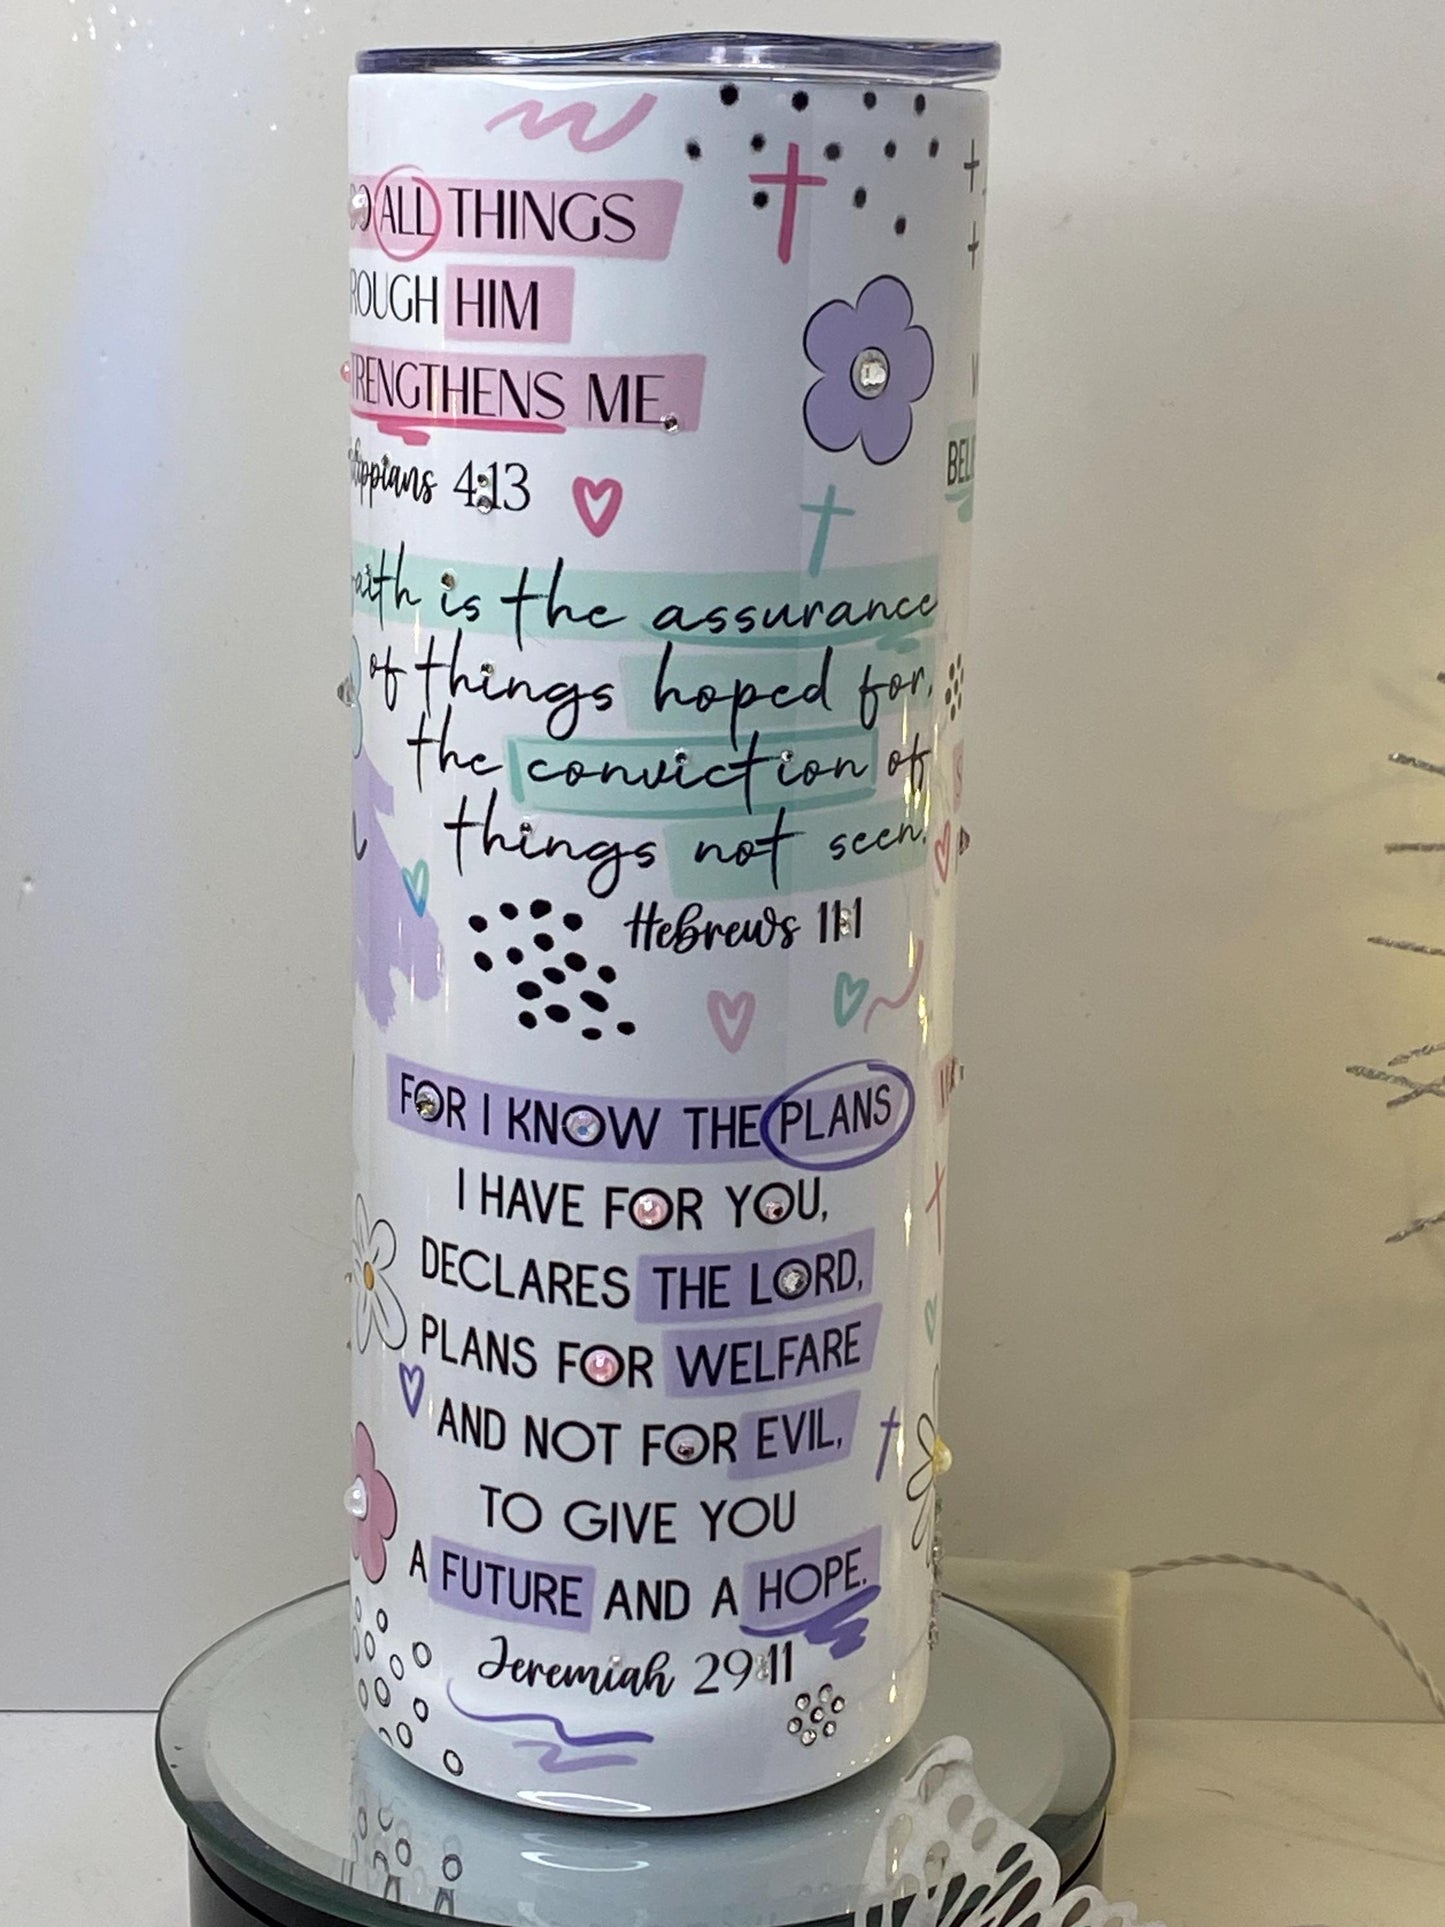 DO ALL THINGS
ROUGH HIM
TRENGTHENS ME.
lippians 4:13
aith is the assurance
of things hoped for,
the conviction of
things not seen.
Hebrews 11:1
FOR I KNOW THE PLANS
I HAVE FOR YOU,
DECLARES THE LORD,
PLANS FOR WELFARE
AND NOT FOR EVIL,
TO GIVE YOU
A FUTURE AND A HOPE.
Jeremiah 29:11
BEL